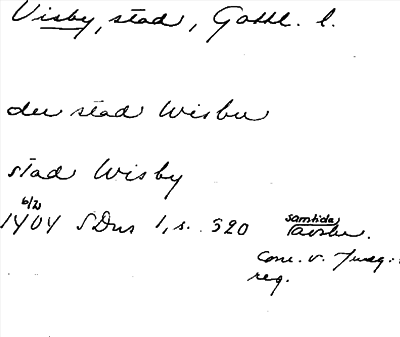 Visby, stad, Gotl. l.
der stad Wisbu
stad Wisby
6/2
1404 SDns 1, s. 520 samtida avskr.
Conc. v. Jung.-
reg.